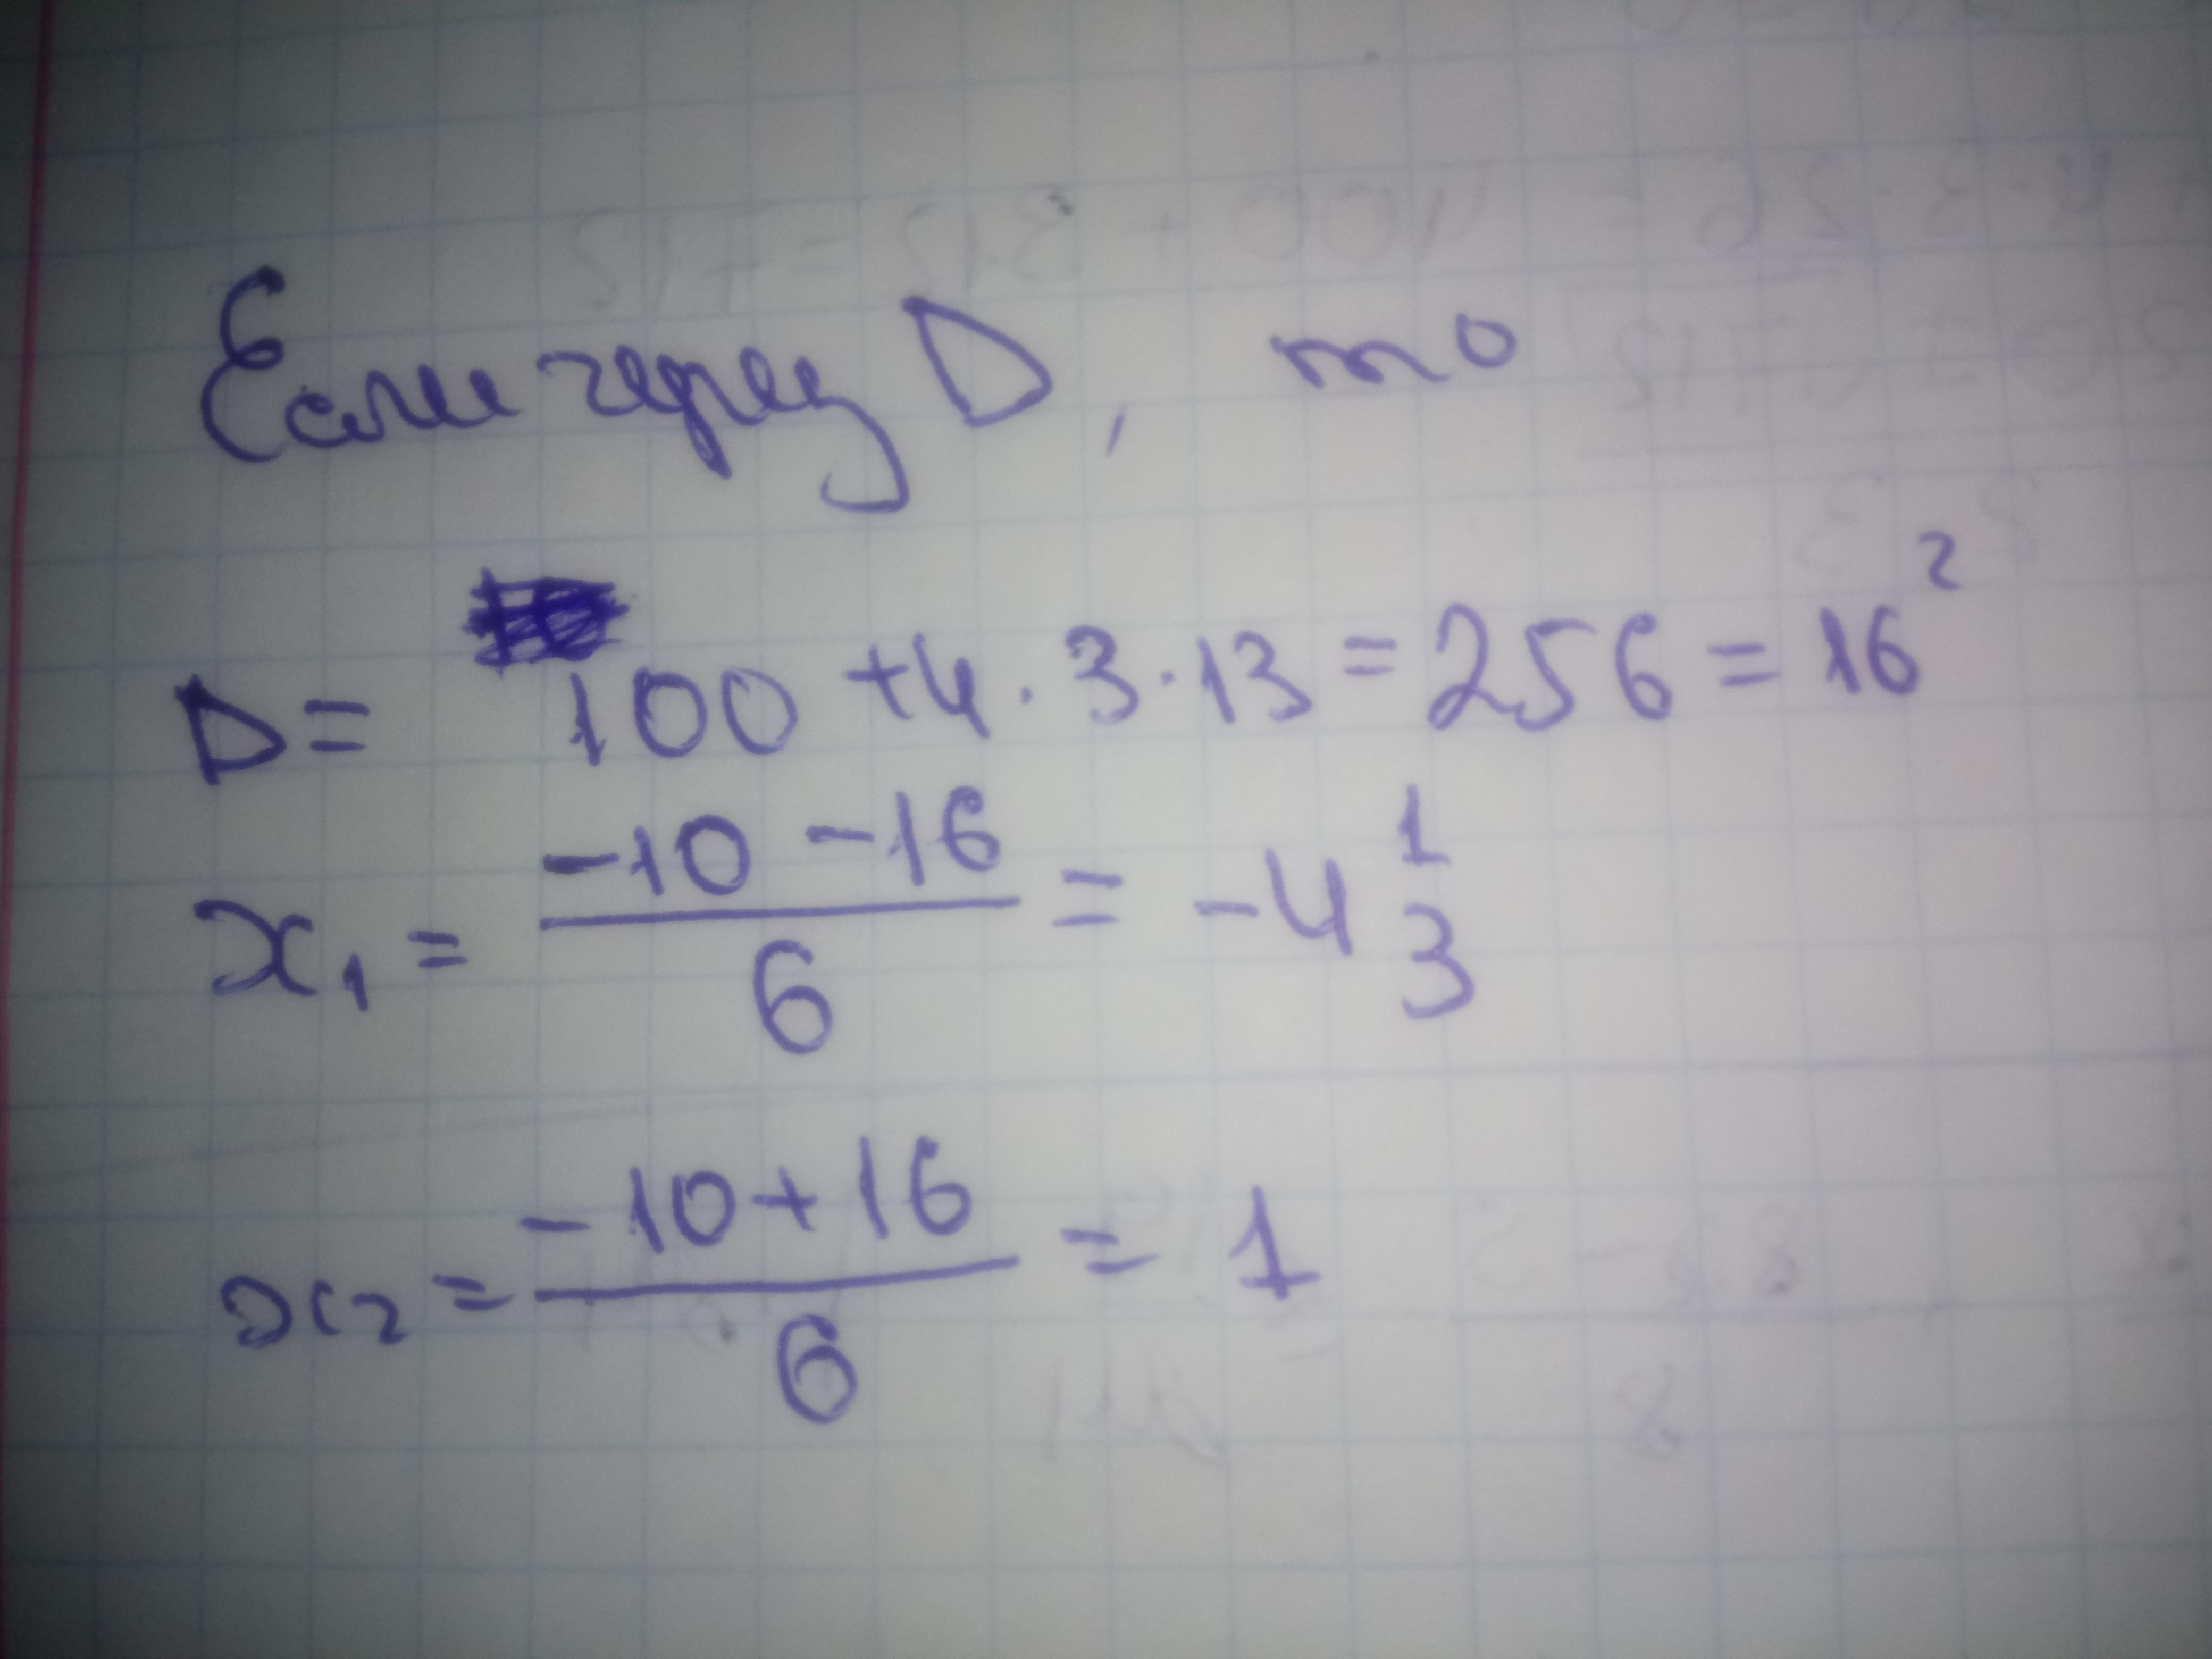 Если через D, то
D = 100 + 4 · 3 · 13 = 256 = 16²
x₁ = (-10 - 16)/6 = -4 1/3
x₂ = (-10 + 16)/6 = 1